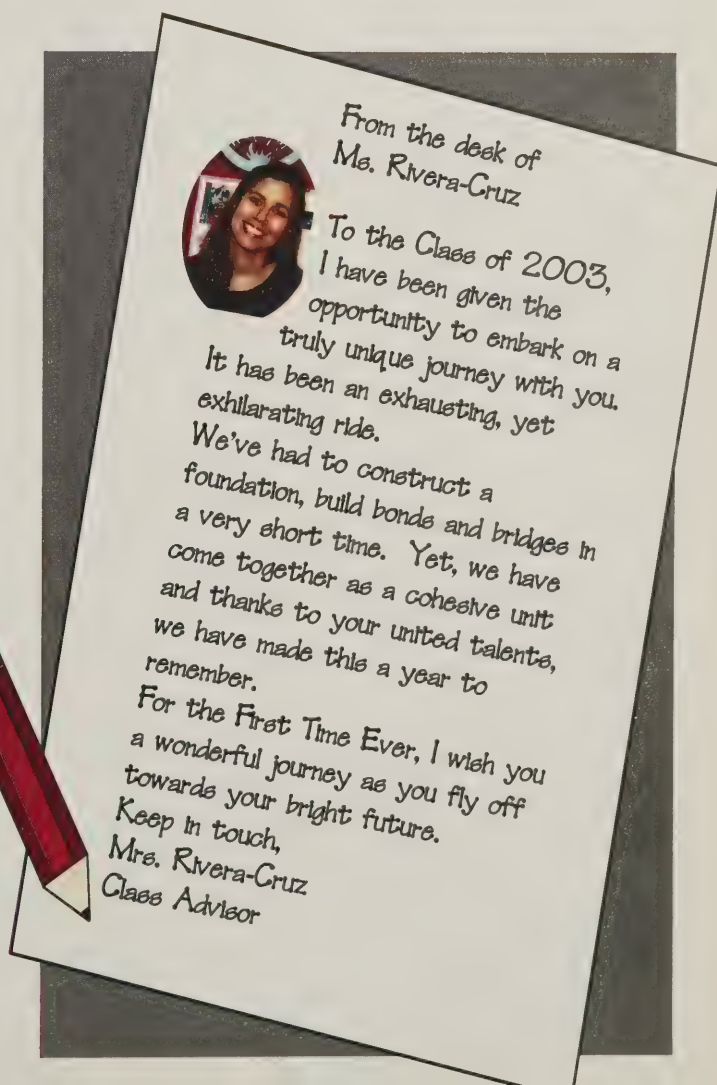 From the desk of
Ms. Rivera-Cruz
To the Class of 2003,
I have been given the
opportunity to embark on a
truly unique journey with you.
It has been an exhausting, yet
exhilarating ride.
We've had to construct a
foundation, build bonds and bridges in
a very short time. Yet, we have
come together as a cohesive unit
and thanks to your united talents,
we have made this a year to
remember.
For the First Time Ever, I wish you
a wonderful journey as you fly off
towards your bright future.
Keep in touch,
Mrs. Rivera-Cruz
Class Advisor